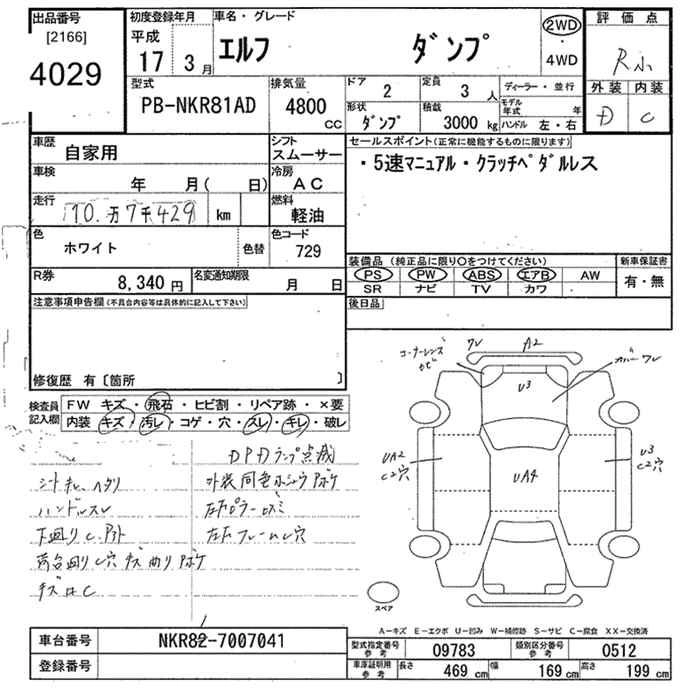 出品番号
[2166]
4029
初度登録年月
平成
17 3月
車名・グレード
エルフ ダンプ
2WD
・
4WD
評価点
R小
外装 内装
D C
型式
PB-NKR81AD
排気量
4800 CC
ドア
2
定員
3 人
ディーラー・並行
モデル年式 年
形状
ダンプ
積載
3000 kg
ハンドル 左・右
車歴
自家用
シフト
スムーサー
セールスポイント(正常に機能するものに限ります)
・5速マニュアル・クラッチペダルレス
車検
年 月( 日)
冷房
AC
走行
10万7千429 km
燃料
軽油
色
ホワイト
色替
色コード
729
R券
8,340 円
名変通知期限
月 日
装備品(純正品に限り〇をつけてください)
PS PW ABS エアB AW
SR ナビ TV カワ
新車保証書
有・無
注意事項申告欄(不具合内容等は具体的に記入して下さい)
後日品
修復歴 有〔箇所 〕
検査員記入欄
FW キズ・飛石・ヒビ割・リペア跡・×要
内装 キズ・汚レ・コゲ・穴・スレ・キレ・破レ
コーナーレンズ
ワレ
A2
カバーワレ
U3
UA2
C2穴
UA4
U3
C2穴
スペア
DPDランプ点滅
シートキレ、ヘタリ
ハンドルスレ
下廻りC
荷台廻りC穴 キズ 曲り
左右フレームC穴
A-キズ E-エクボ U-凹み W-補修跡 S-サビ C-腐食 XX-交換済
車台番号 NKR82-7007041
登録番号
型式指定番号 参考 09783
類別区分番号 参考 0512
車庫証明用 参考 長さ 469 cm 幅 169 cm 高さ 199 cm